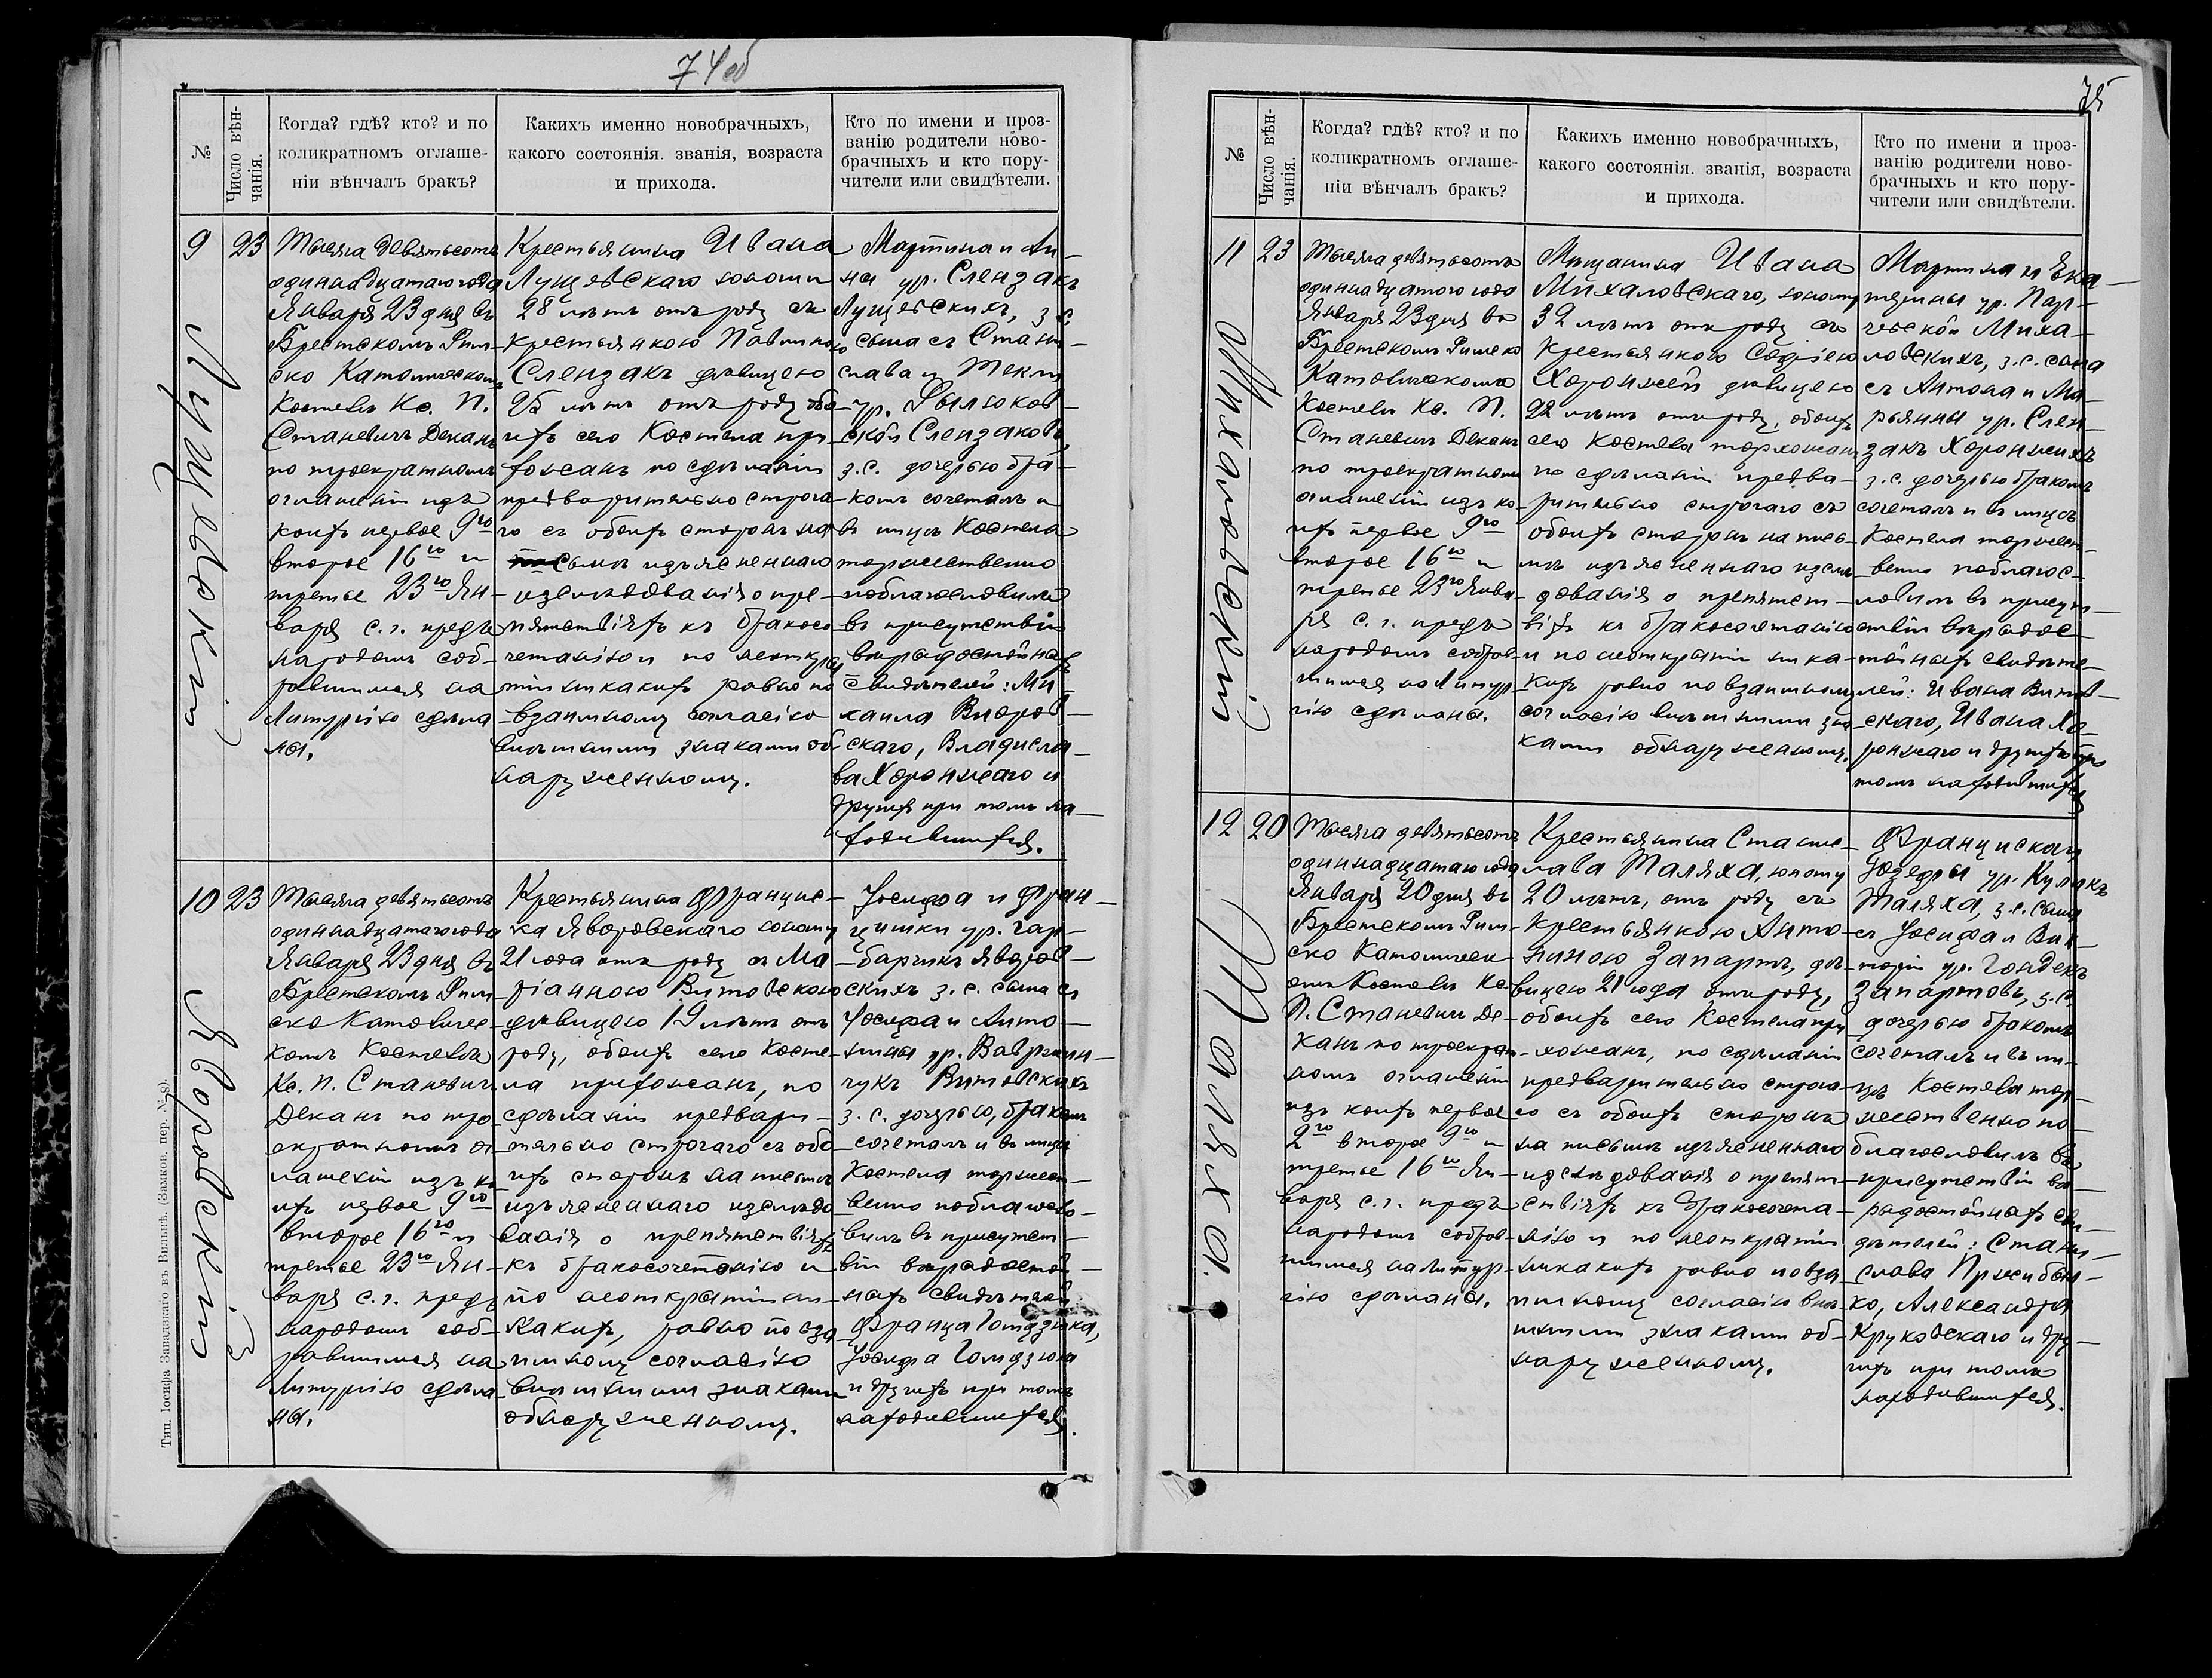 74об
№
Число вѣн-
чанія.
Когда? гдѣ? кто? и по
коликратномъ оглаше-
ніи вѣнчалъ бракъ?
Какихъ именно новобрачныхъ,
какого состоянія. званія, возраста
и прихода.
Кто по имени и проз-
ванію родители ново-
брачныхъ и кто пору-
чители или свидѣтели.
9
23
Лущевскій
Тысяча девятьсотъ
одиннадцатаго года
Января 23 дня въ
Брестскомъ Рим-
ско Католическомъ
Костелѣ Кс. П.
Станевичъ Деканъ
по троекратномъ
оглашеніи изъ
коихъ первое 9го
второе 16го и
третье 23го Ян-
варя с. г. предъ
народомъ соб-
равшимся на
Литургію сдѣла
ны.
Крестьянина Ивана
Лущевскаго юношу
28 лѣтъ отъ роду съ
Крестьянкою Павлиною
Слензакъ дѣвицею
25 лѣтъ отъ роду обо
ихъ сего Костела при
хожанъ по сдѣланіи
предварительно строга
го съ обоихъ сторонъ на
письмѣ изъясненнаго
изслѣдованія о пре-
пятствіяхъ къ бракосо
четанію и по неоткры
тіи никакихъ равно по
взаимному согласію
внѣшними знаками об
наруженному.
Мартина и Ан-
ны ур. Слензакъ
Лущевскихъ, з. с.
сына съ Стани-
слава и Текли
ур.
ской Слензаковъ,
з. с. дочерью бра-
комъ сочеталъ и
въ лицѣ Костела
торжественно
поблагословилъ
въ присутствіи
вѣрадостойныхъ
свидѣтелей: Ми
хаила
скаго, Владисла-
ва Хоронжаго и
другихъ при томъ на-
ходившихся.
10
23
Яворовскій
Тысяча девятьсотъ
одиннадцатаго года
Января 23 дня въ
Брестскомъ Рим
ско Католичес-
комъ Костелѣ
Кс. П. Станевичъ
Деканъ по тро
екратномъ ог
лашеніи изъ ко
ихъ первое 9го
второе 16го и
третье 23го Ян-
варя с. г. предъ
народомъ соб-
равшимся на
Литургію сдѣла
ны.
Крестьянина Францис-
ка Яворовскаго юношу
21 года отъ роду съ Ма
ріанною Витовскою
дѣвицею 19 лѣтъ отъ
роду, обоихъ сего Косте-
ла прихожанъ, по
сдѣланіи предвари-
тельно строгаго съ обо
ихъ сторонъ на письмѣ
изъясненнаго изслѣдо
ванія о препятствіяхъ
къ бракосочетанію и
по неоткрытіи ни-
какихъ, равно по вза
имному согласію
внѣшними знаками
обнаруженному.
Іосифа и Фран-
цишки ур. Гар-
барчикъ Яворов-
скихъ з. с. сына съ
Іосифа и Анто-
нины ур. Вавржин-
чукъ Витовскихъ
з. с. дочерью, бракомъ
сочеталъ и въ лицѣ
Костела торжест-
венно поблагосло-
вилъ въ присутст-
віи вѣрадостой-
ныхъ свидѣтелей
Франца Гомдзюка,
Іосифа Гомдзюка
и другихъ при томъ
находившихся.
Тип. Іосифа Завадзкаго въ Вильнѣ. (Замков. пер. № 8).
75
№
Число вѣн-
чанія.
Когда? гдѣ? кто? и по
коликратномъ оглаше-
ніи вѣнчалъ бракъ?
Какихъ именно новобрачныхъ,
какого состоянія. званія, возраста
и прихода.
Кто по имени и проз-
ванію родители ново-
брачныхъ и кто пору-
чители или свидѣтели.
11
23
Михаловскій
Тысяча девятьсотъ
одиннадцатого года
Января 23 дня въ
Брестскомъ Римско
Католическомъ
Костелѣ Кс. П.
Станевичъ Деканъ
по троекратномъ
оглашеніи изъ ко-
ихъ первое 9го
второе 16го и
третье 23го Янва-
ря с. г. предъ
народомъ собрав-
шимся на Литур-
гію сдѣланы.
Мѣщанина Ивана
Михаловскаго, юношу
32 лѣтъ отъ роду съ
Крестьянкою Софіею
Хоронжей дѣвицею
22 лѣтъ отъ роду, обоихъ
сего Костела прихожанъ
по сдѣланіи предва-
рительно строгаго съ
обоихъ сторонъ на пись-
мѣ изъясненнаго изслѣ
дованія о препятст-
віяхъ къ бракосочетанію
и по неоткрытіи ника-
кихъ равно по взаимному
согласію внѣшними зна
ками обнаруженному.
Мартина и Ека-
терины ур. Пар-
чевской Миха-
ловскихъ, з. с. сына
съ Антона и Ма-
рьянны ур. Слен-
закъ Хоронжихъ
з. с. дочерью бракомъ
сочеталъ и въ лицѣ
Костела торжест-
венно поблагос-
ловилъ въ присут-
ствіи вѣрадос-
тойныхъ свидѣте-
лей: Ивана Витов-
скаго, Ивана Хо-
ронжаго и другихъ при
томъ находившихся
12
20
Маляха.
Тысяча девятьсотъ
одиннадцатаго года
Января 20 дня въ
Брестскомъ Рим-
ско Католическ-
омъ Костелѣ Кс.
П. Станевичъ Де-
канъ по троекрат-
номъ оглашеніи
изъ коихъ первое
2го второе 9го и
третье 16го Ян-
варя с. г. предъ
народомъ собрав-
шимся на литур-
гію сдѣланы.
Крестьянина Станис-
лава Маляха, юношу
20 лѣтъ, отъ роду съ
Крестьянкою Анто-
ниною Запартъ, дѣ-
вицею 21 года отъ роду,
обоихъ сего Костела при
хожанъ, по сдѣланіи
предварительно строга-
го съ обоихъ сторонъ
на письмѣ изъясненнаго
изслѣдованія о препят-
ствіяхъ къ бракосочета-
нію и по неоткрытіи
никакихъ равно по вза
имному согласію внѣ-
шними знаками об-
наруженному.
Франциска и
Юзефы ур. Кулакъ
Маляха, з. с. сына
съ Іосифа и Вик-
торіи ур. Гондекъ
Запартовъ, з. с.
дочерью бракомъ
сочеталъ и въ ли-
цѣ Костела тор-
жественно по-
благословилъ въ
присутствіи вѣ-
радостойныхъ сви-
дѣтелей: Стани-
слава Пржибыл-
ко, Александра
Круковскаго и дру-
гихъ при томъ
находившихся.